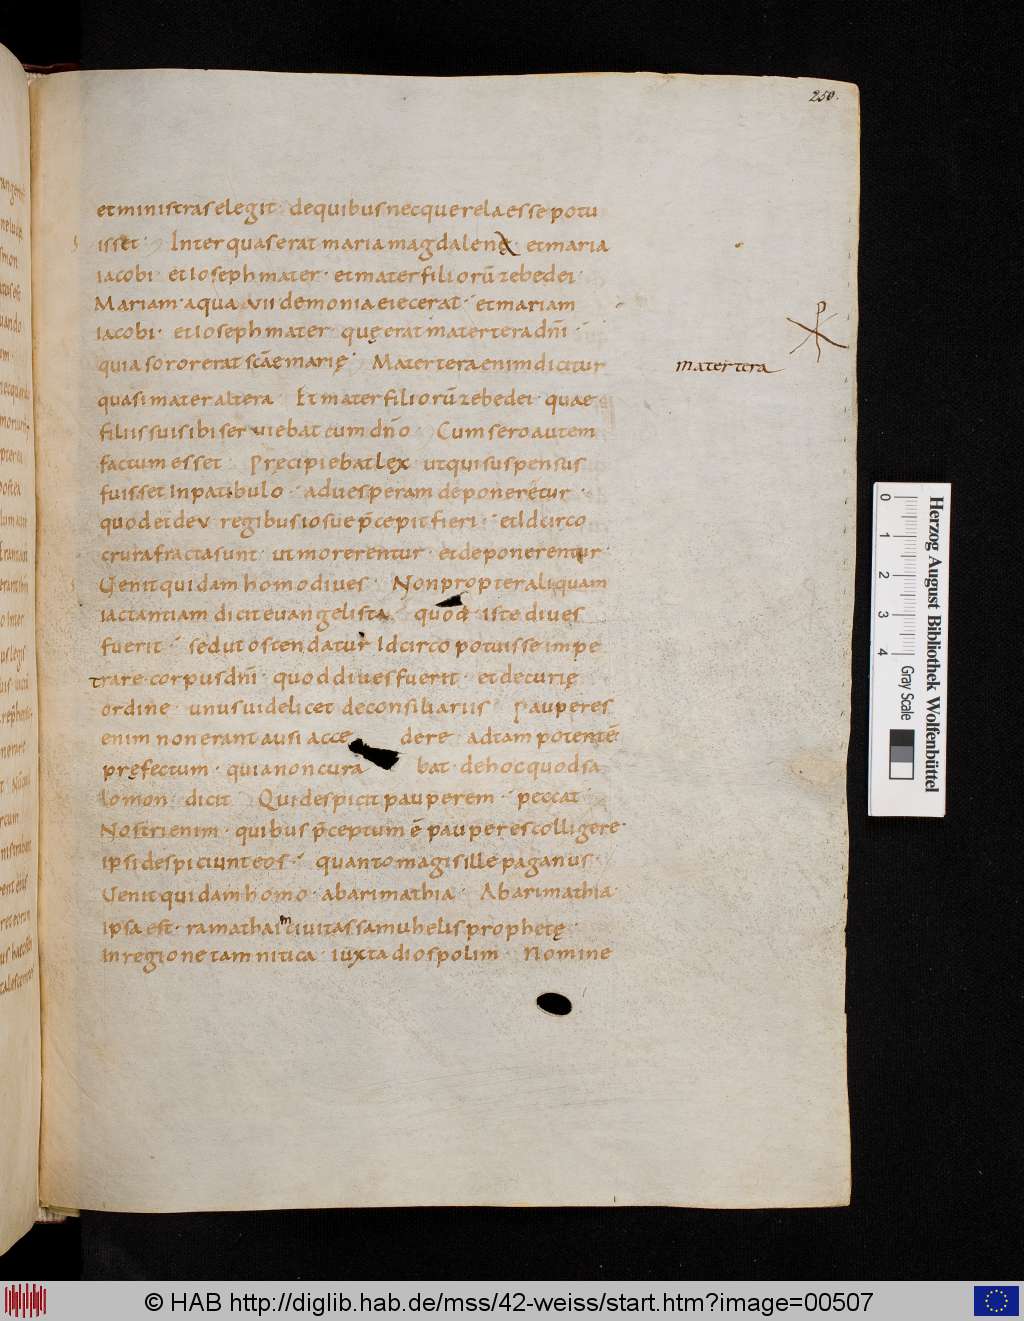 250.
et ministras elegit · de quibus nec querela esse potu
isset · Inter quas erat maria magdalenę · et maria
iacobi · et Ioseph mater · et mater filiorū zebedei ·
Mariam · a qua VII demonia eiecerat · et mariam
iacobi · et Ioseph mater · quę erat matertera dn̄i ·
quia soror erat scāe marię · Matertera enim dicitur
matertera
quasi mater altera · Et mater filiorū zebedei · quae
filiis suis ibi serviebat cum dn̄o · Cum sero autem
factum esset · Pręcipiebat lex · ut qui suspensus
fuisset In patibulo · ad uesperam deponeretur ·
quod et de V regibus iosue p̄cepit fieri · et Idcirco
crura fracta sunt · ut morerentur · et deponerentur ·
Uenit quidam homo diues · Non propter aliquam
iactantiam dicit euangelista · quod iste diues
fuerit · sed ut ostendatur Idcirco potuisse impe
trare corpus dn̄i · quod diues fuerit · et decurię
ordine · unus uidelicet de consiliariis · Pauperes
enim non erant ausi acce dere · ad tam potentē
pręfectum · quia non cura bat · de hoc quod sa
lomon · dicit · Qui despicit pauperem · peccat ·
Nostri enim · quibus p̄ceptum ē pauperes colligere ·
ipsi despiciunt eos · quanto magis ille paganus ·
Uenit quidam homo · ab arimathia · Ab arimathia ·
ipsa est · ramathaim ciuitas samuhelis prophetę ·
In regione tamnitica · iuxta diospolim · Nomine
Herzog August Bibliothek Wolfenbüttel
0 1 2 3 4
Gray Scale
© HAB http://diglib.hab.de/mss/42-weiss/start.htm?image=00507